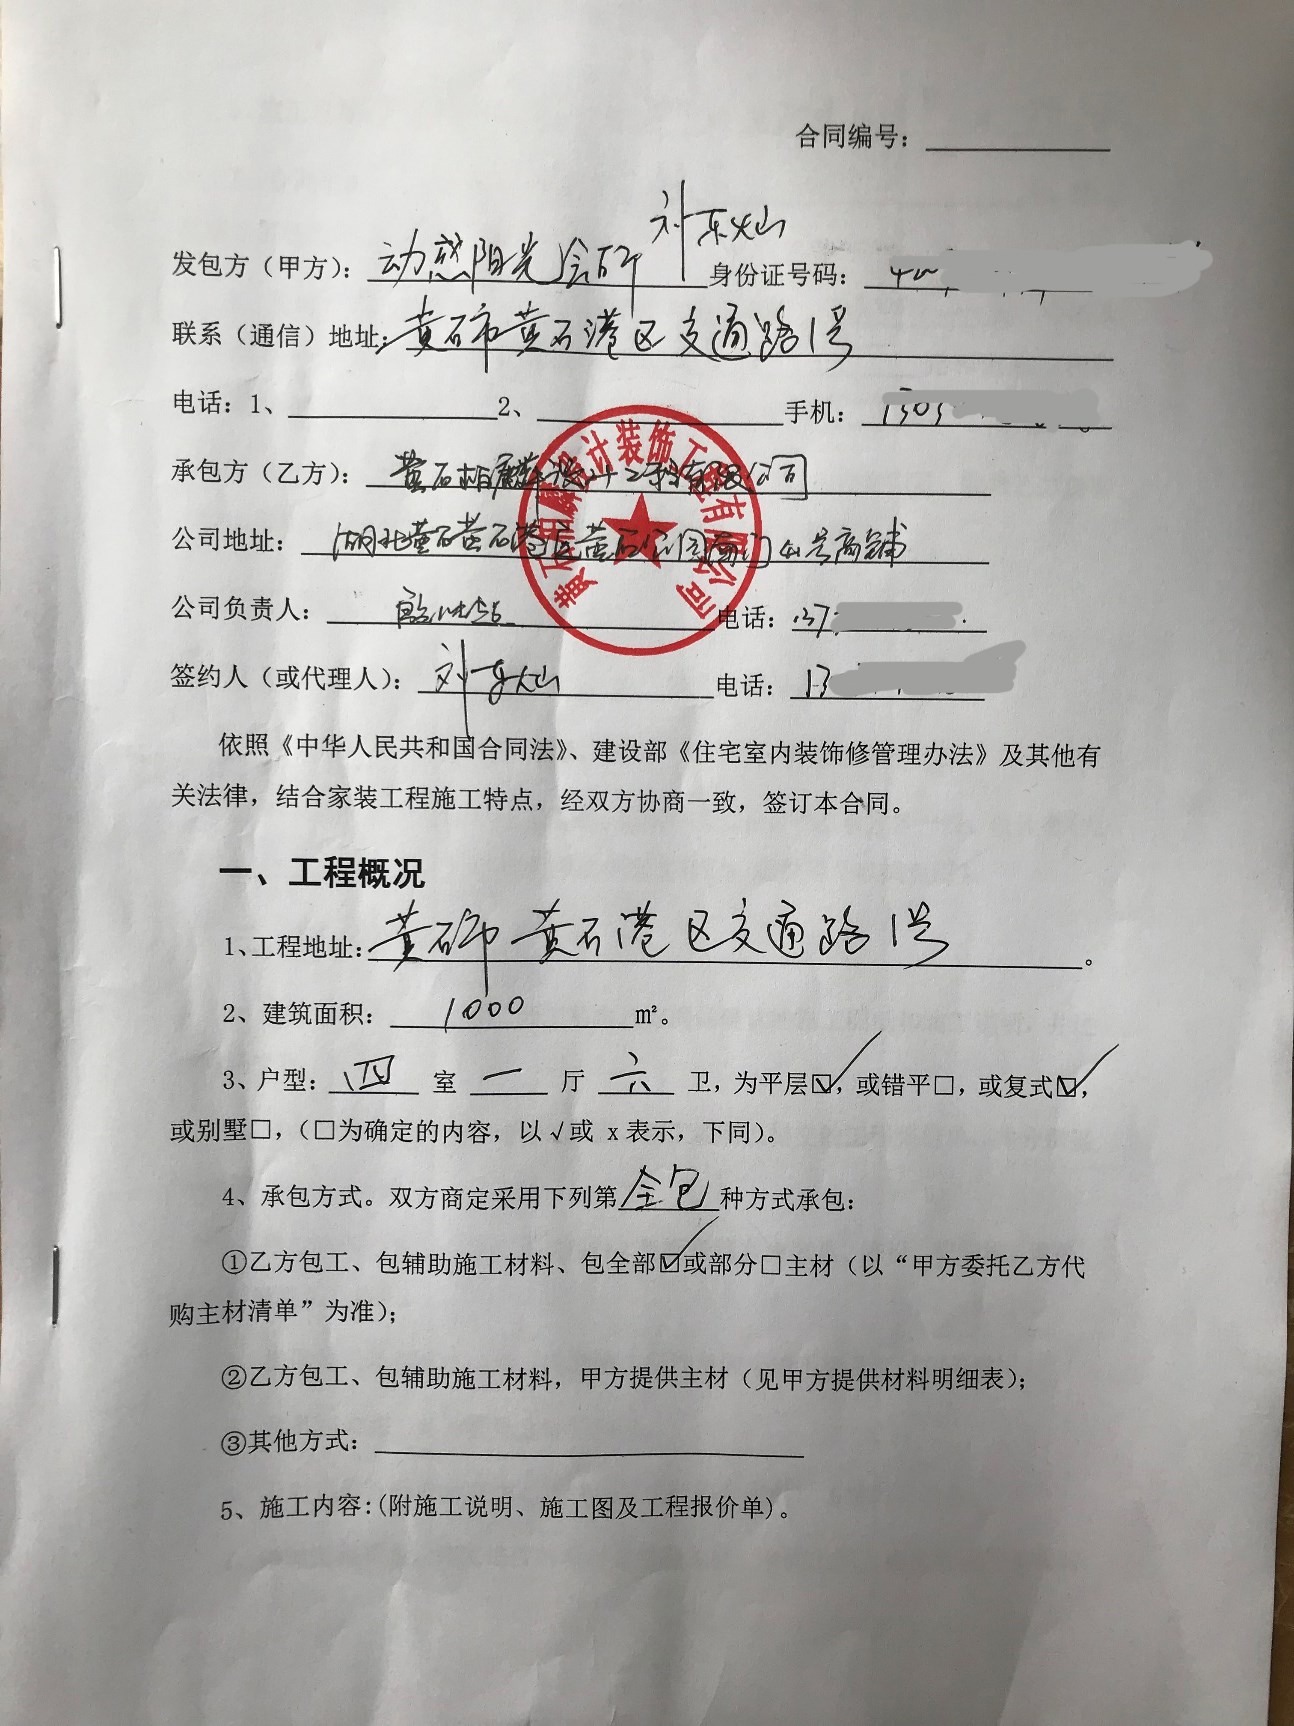 合同编号：
刘东灿
发包方（甲方）： 动感阳光会所 身份证号码：
联系（通信）地址： 黄石市黄石港区交通路1号
电话：1、 2、 手机：
承包方（乙方）： 黄石 设计工程有限公司
公司地址： 湖北黄石黄石港区黄石公园南门 号商铺
公司负责人： 电话：
签约人（或代理人）： 刘东灿 电话： 13
设计装饰工程有限公司
依照《中华人民共和国合同法》、建设部《住宅室内装饰修管理办法》及其他有
关法律，结合家装工程施工特点，经双方协商一致，签订本合同。
一、工程概况
1、工程地址： 黄石市黄石港区交通路1号 。
2、建筑面积： 1000 ㎡。
3、户型： 四 室 一 厅 六 卫，为平层☑，或错平□，或复式☑，
或别墅□，（□为确定的内容，以√或 x表示，下同）。
4、承包方式。双方商定采用下列第 全包 种方式承包：
①乙方包工、包辅助施工材料、包全部☑或部分□主材（以“甲方委托乙方代
购主材清单”为准）；
②乙方包工、包辅助施工材料，甲方提供主材（见甲方提供材料明细表）；
③其他方式：
5、施工内容:(附施工说明、施工图及工程报价单)。